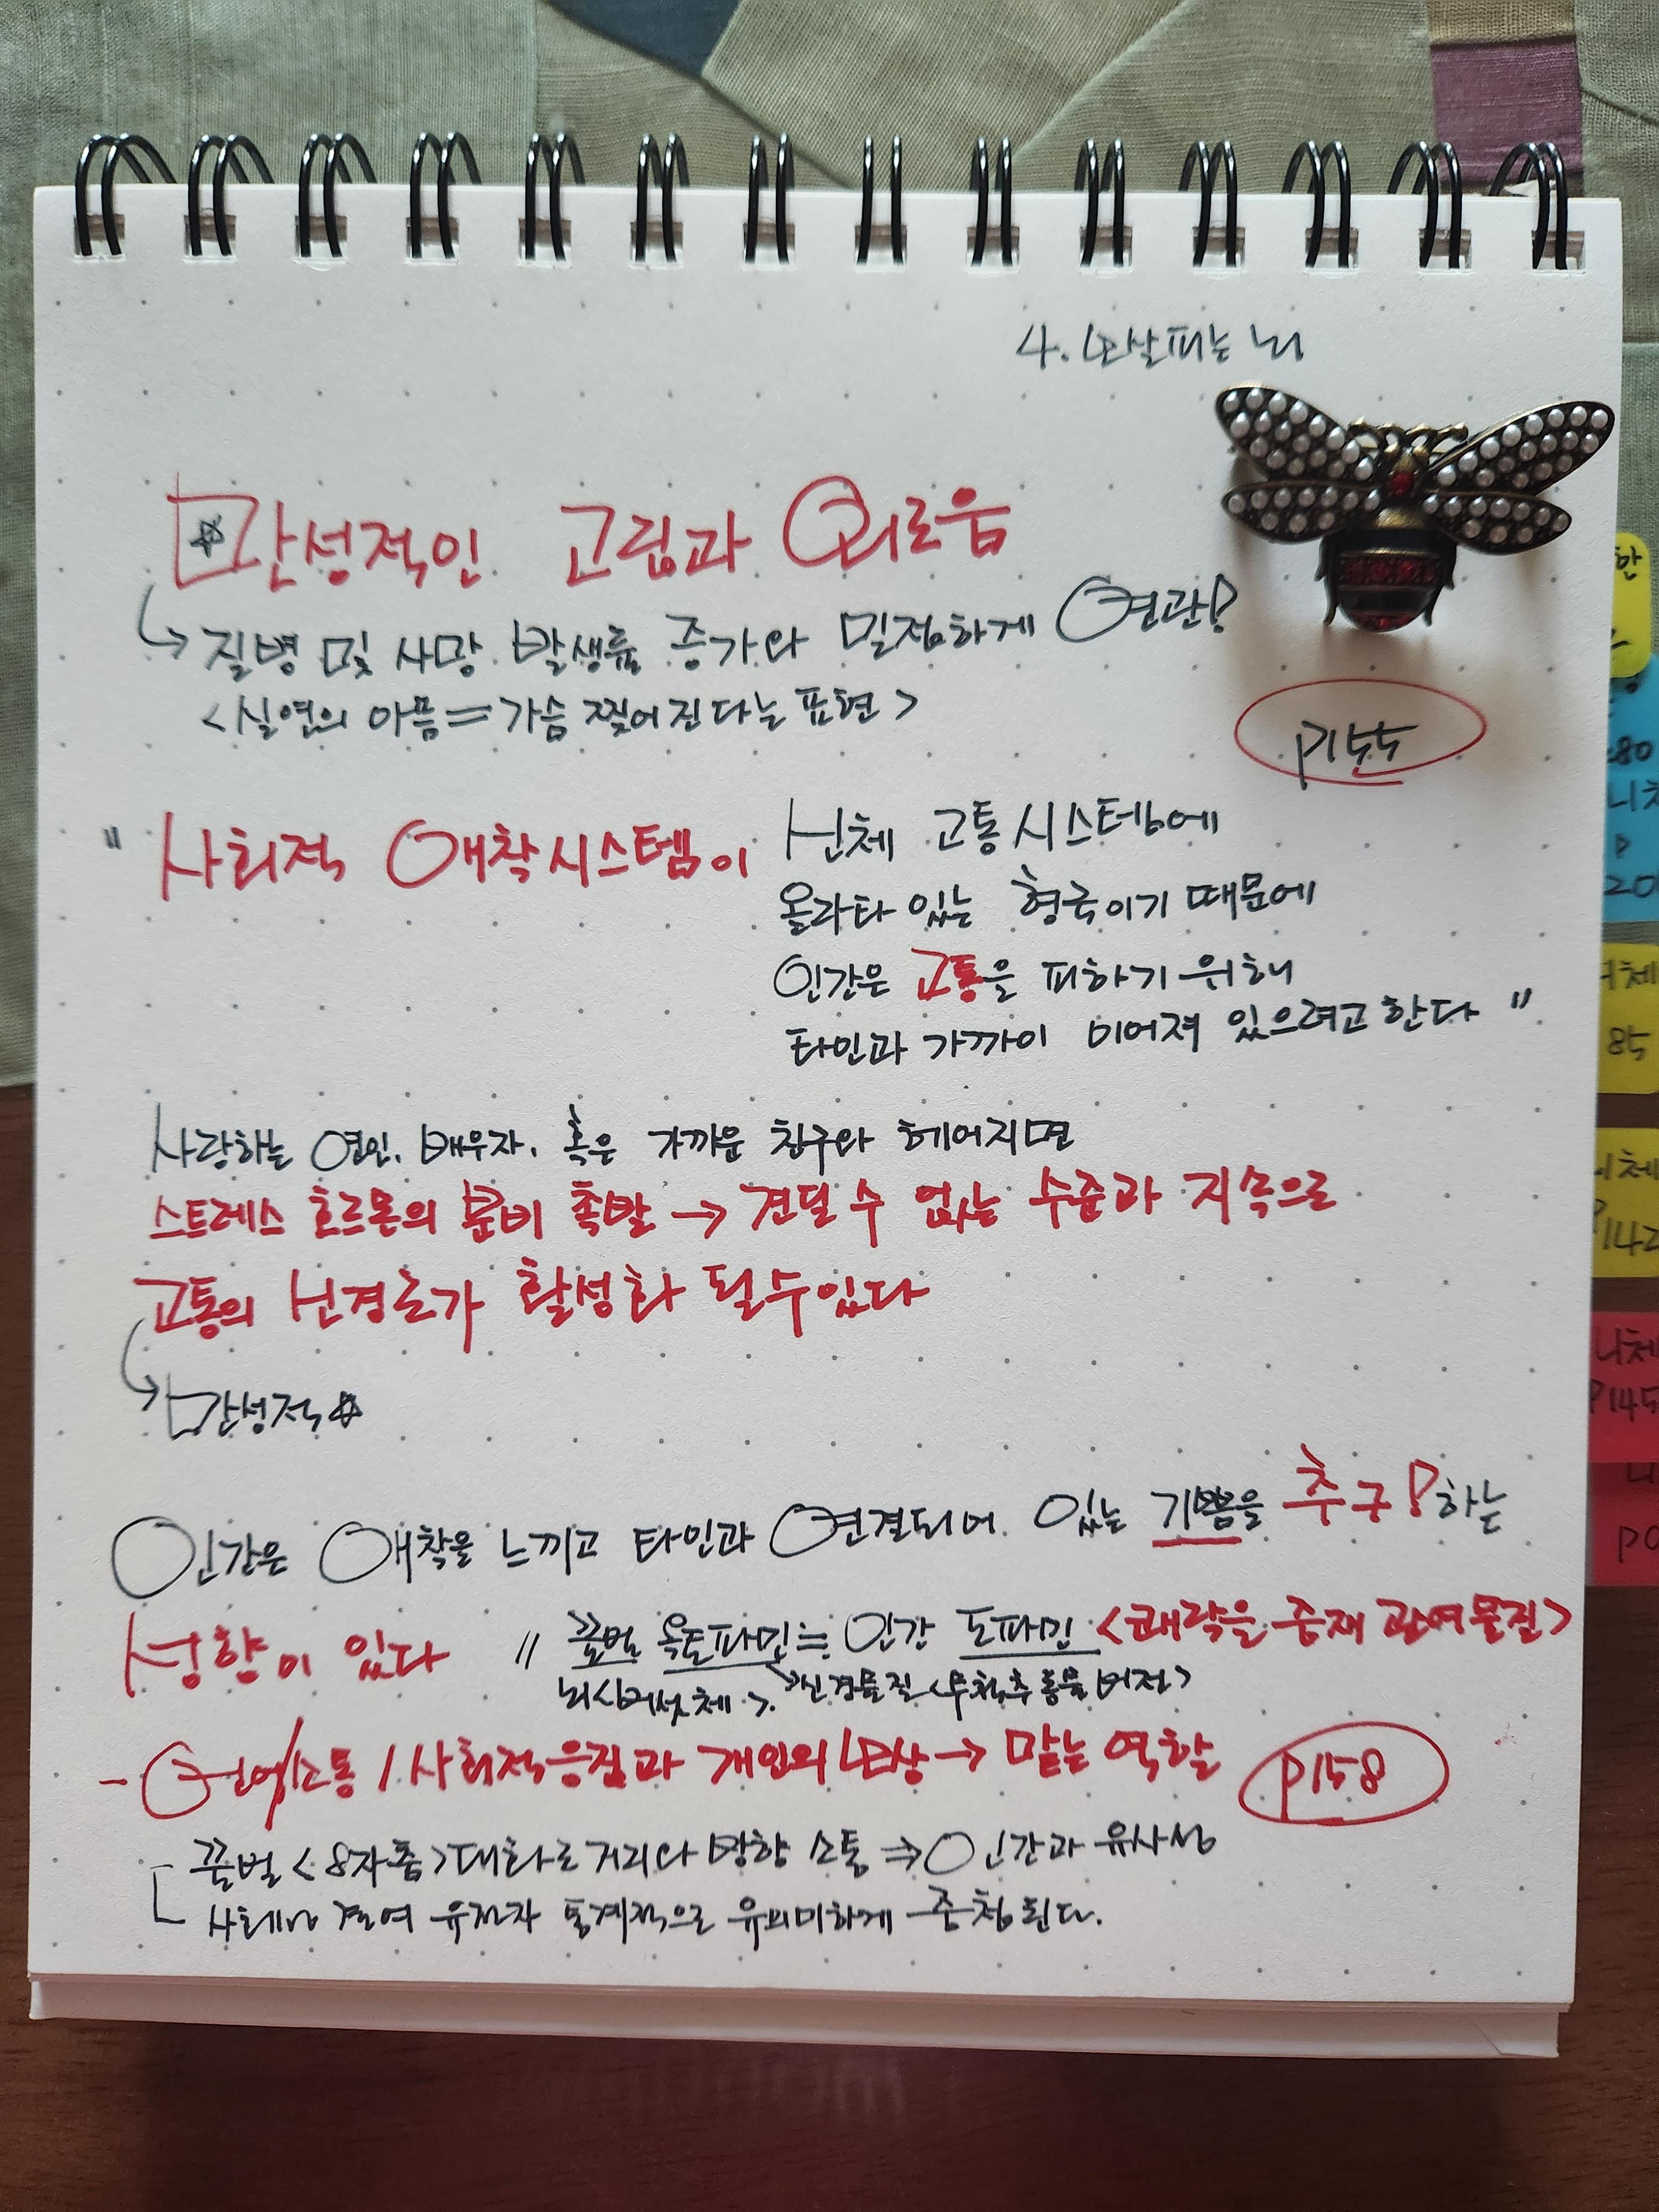 4. 보살피는 뇌
만성적인 고립과 외로움
↳ 질병 및 사망 발생률 증가와 밀접하게 연관!
<실연의 아픔 = 가슴 찢어진다는 표현>
p155
" 사회적 애착시스템이 신체 고통 시스템에
올라타 있는 형국이기 때문에
인간은 고통을 피하기 위해
타인과 가까이 이어져 있으려고 한다 "
사랑하는 연인, 배우자, 혹은 가까운 친구와 헤어지면
스트레스 호르몬의 분비 촉발 → 견딜 수 없는 수준과 지속으로
고통의 신경로가 활성화 될 수 있다
↳ 만성적☆
인간은 애착을 느끼고 타인과 연결되어 있는 기쁨을 추구! 하는
성향이 있다 " 꿀벌 옥토파민 ≒ 인간 도파민 <쾌락을 중재 관여물질>
뇌<버섯체> → 신경물질 <무척추동물 버전>
- 언어/소통 / 사회적응집과 개인의 보상 → 맡는 역할
p158
꿀벌 <8자춤> 대화로 거리와 방향 소통 ⇒ 인간과 유사성
관여 유전자 통계적으로 유의미하게 중첩된다.
한
80
니체
P
20
니체
85
니체
P142
니체
P145